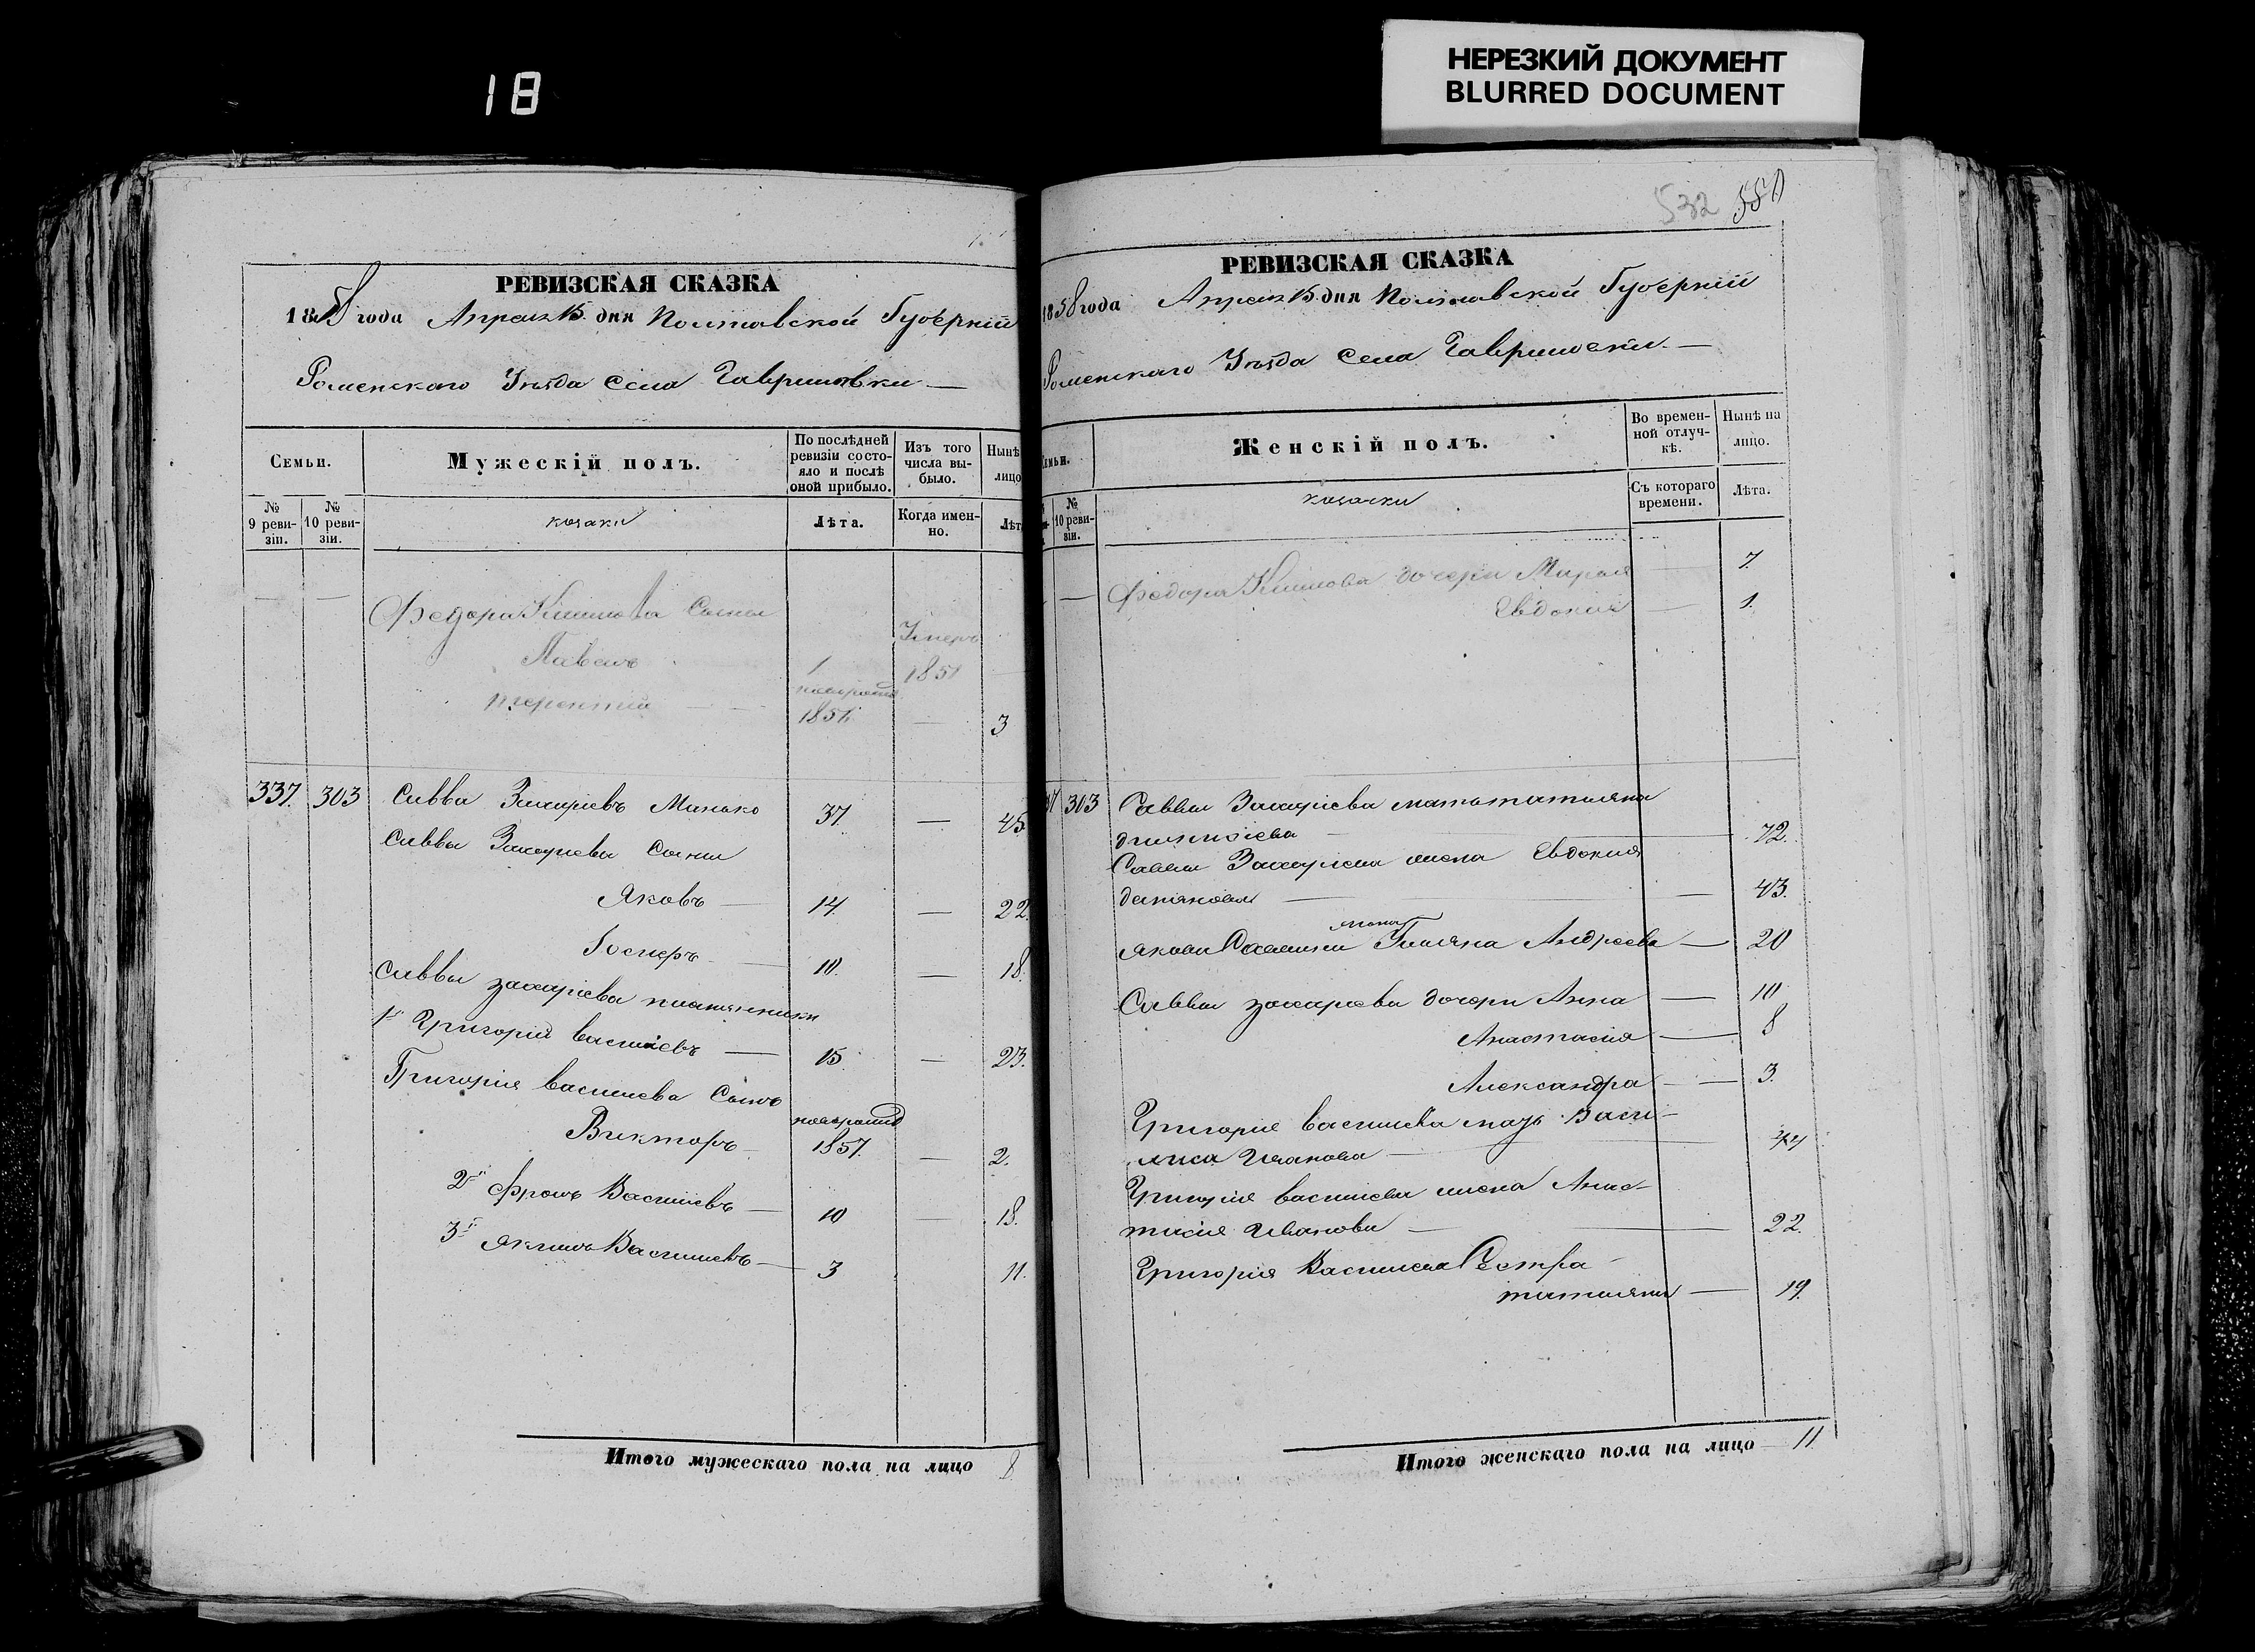 18
НЕРЕЗКИЙ ДОКУМЕНТ
BLURRED DOCUMENT
РЕВИЗСКАЯ СКАЗКА
1858 года Апреля 15 дня Полтавской Губерніи
Роменскаго Уѣзда Села Гавришовки
Семьи.
Мужескій полъ.
По послѣдней ревизіи состояло и послѣ оной прибыло.
Изъ того числа выбыло.
Нынѣ
лицо
№ 9 ревизіи.
№ 10 ревизіи.
козаки
Лѣта.
Когда именно.
Лѣт
Федора Климова Сыны
Умеръ
Павелъ 1 1851
новорожд
Терентій 1851 — 3
337. 303 Савва Захаріевъ Манько 37. — 45
Саввы Захаріева Сыны
Яковъ — 14. — 22.
Іосифъ — 10. — 18.
Саввы Захаріева племянники
1й Григорій Васильевъ — 15. — 23.
Григорія Васильева Сынъ
новорожд
Викторъ 1857. — 2.
2й Фролъ Васильевъ — 10 — 18.
3й Якимъ Васильевъ — 3 11.
Итого мужескаго пола на лицо 8
532 580
РЕВИЗСКАЯ СКАЗКА
1858 года Апреля 15 дня Полтавской Губерніи
Роменскаго Уѣзда Села Гавришовки —
емьи.
Женскій полъ.
Во временной отлучкѣ.
Нынѣ на лицо.
№ 10 ревизіи.
козачки
Съ котораго времени.
Лѣта.
Федора Климова дочери Марья — 7.
Евдокия — 1.
37 303 Саввы Захаріева мать Татіяна
72.
Саввы Захаріева жена Евдокия
Демянова — 43.
жена
Якова Саввина Ульяна Андреева — 20
Саввы Захаріева дочери Анна — 10
Анастасия — 8
Александра — 3.
Григорія Васильева мать Васи-
лиса Иванова
Григорія Васильева жена Анас-
тасия Иванова — 22.
Григорія Васильева Сестра
Татіяна — 19.
Итого женскаго пола на лицо 11